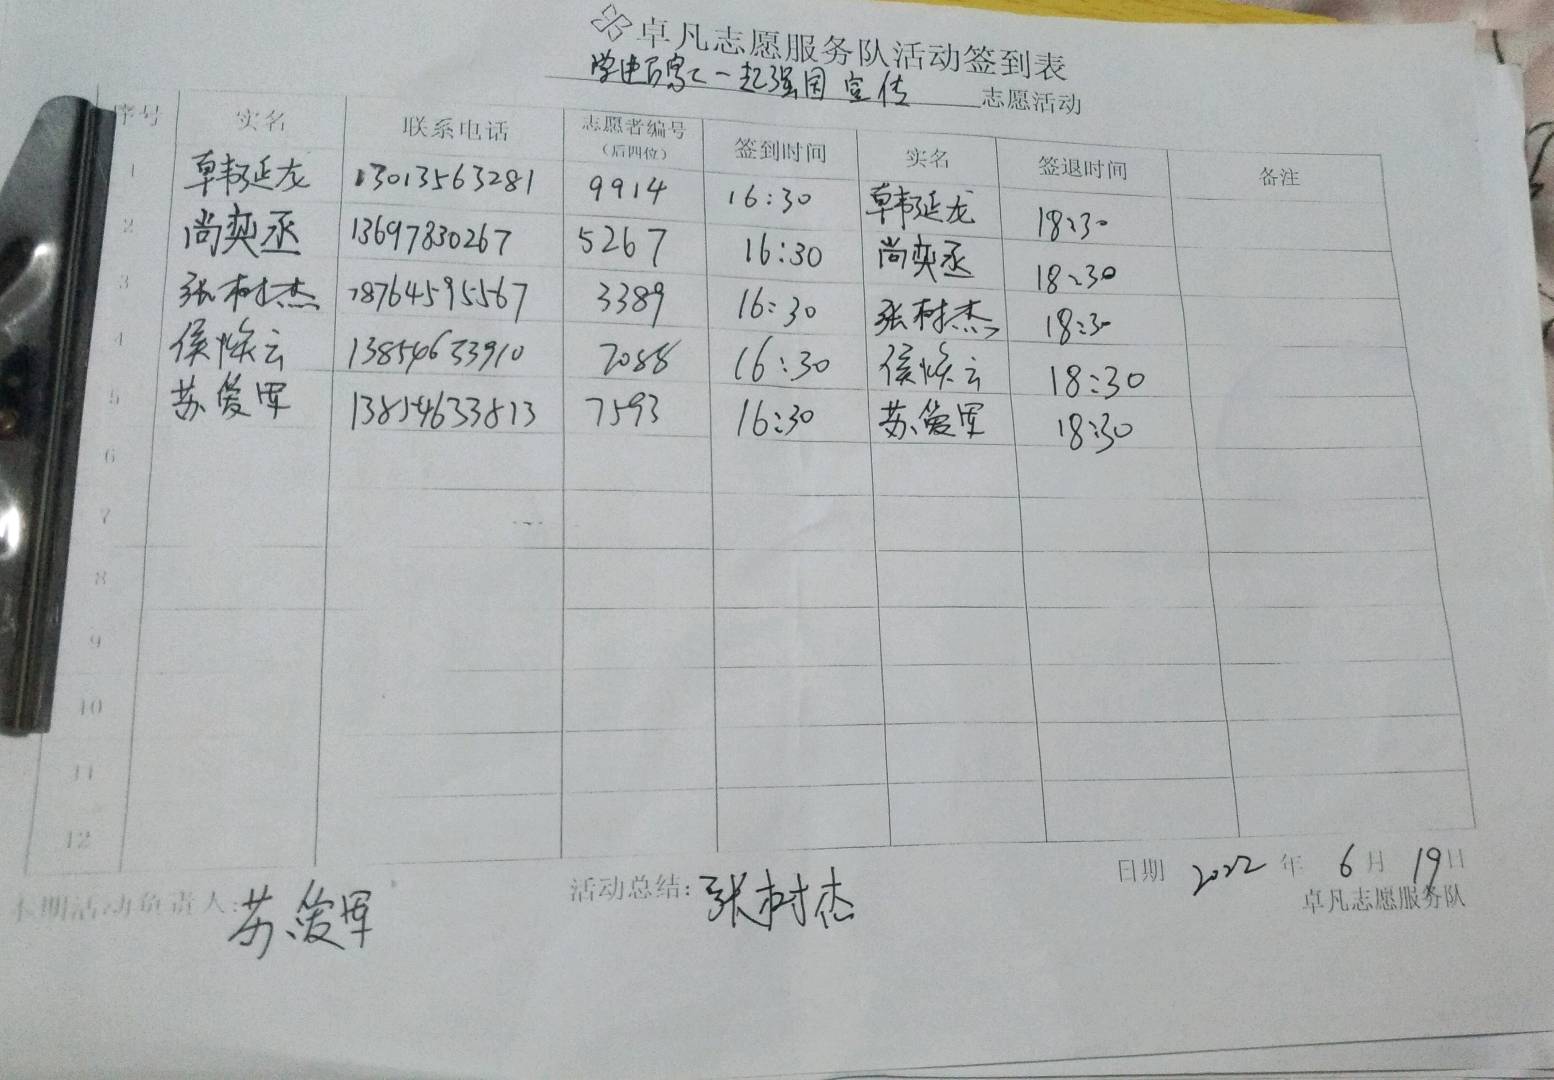 卓凡志愿服务队活动签到表
一起强国宣传 志愿活动
序号 实名 联系电话 志愿者编号（后四位） 签到时间 实名 签退时间 备注
1 韩延龙 13013563281 9914 16:30 韩延龙 18:30
2 尚奕丞 13697830267 5267 16:30 尚奕丞 18:30
3 张树杰 18764595567 3389 16:30 张树杰 18:30
4 侯焕云 13854633910 7088 16:30 侯焕云 18:30
5 苏爱军 13854633813 7593 16:30 苏爱军 18:30
6
7
8
9
10
11
12
本期活动负责人: 苏爱军 活动总结: 张树杰 日期 2022 年 6 月 19 日
卓凡志愿服务队